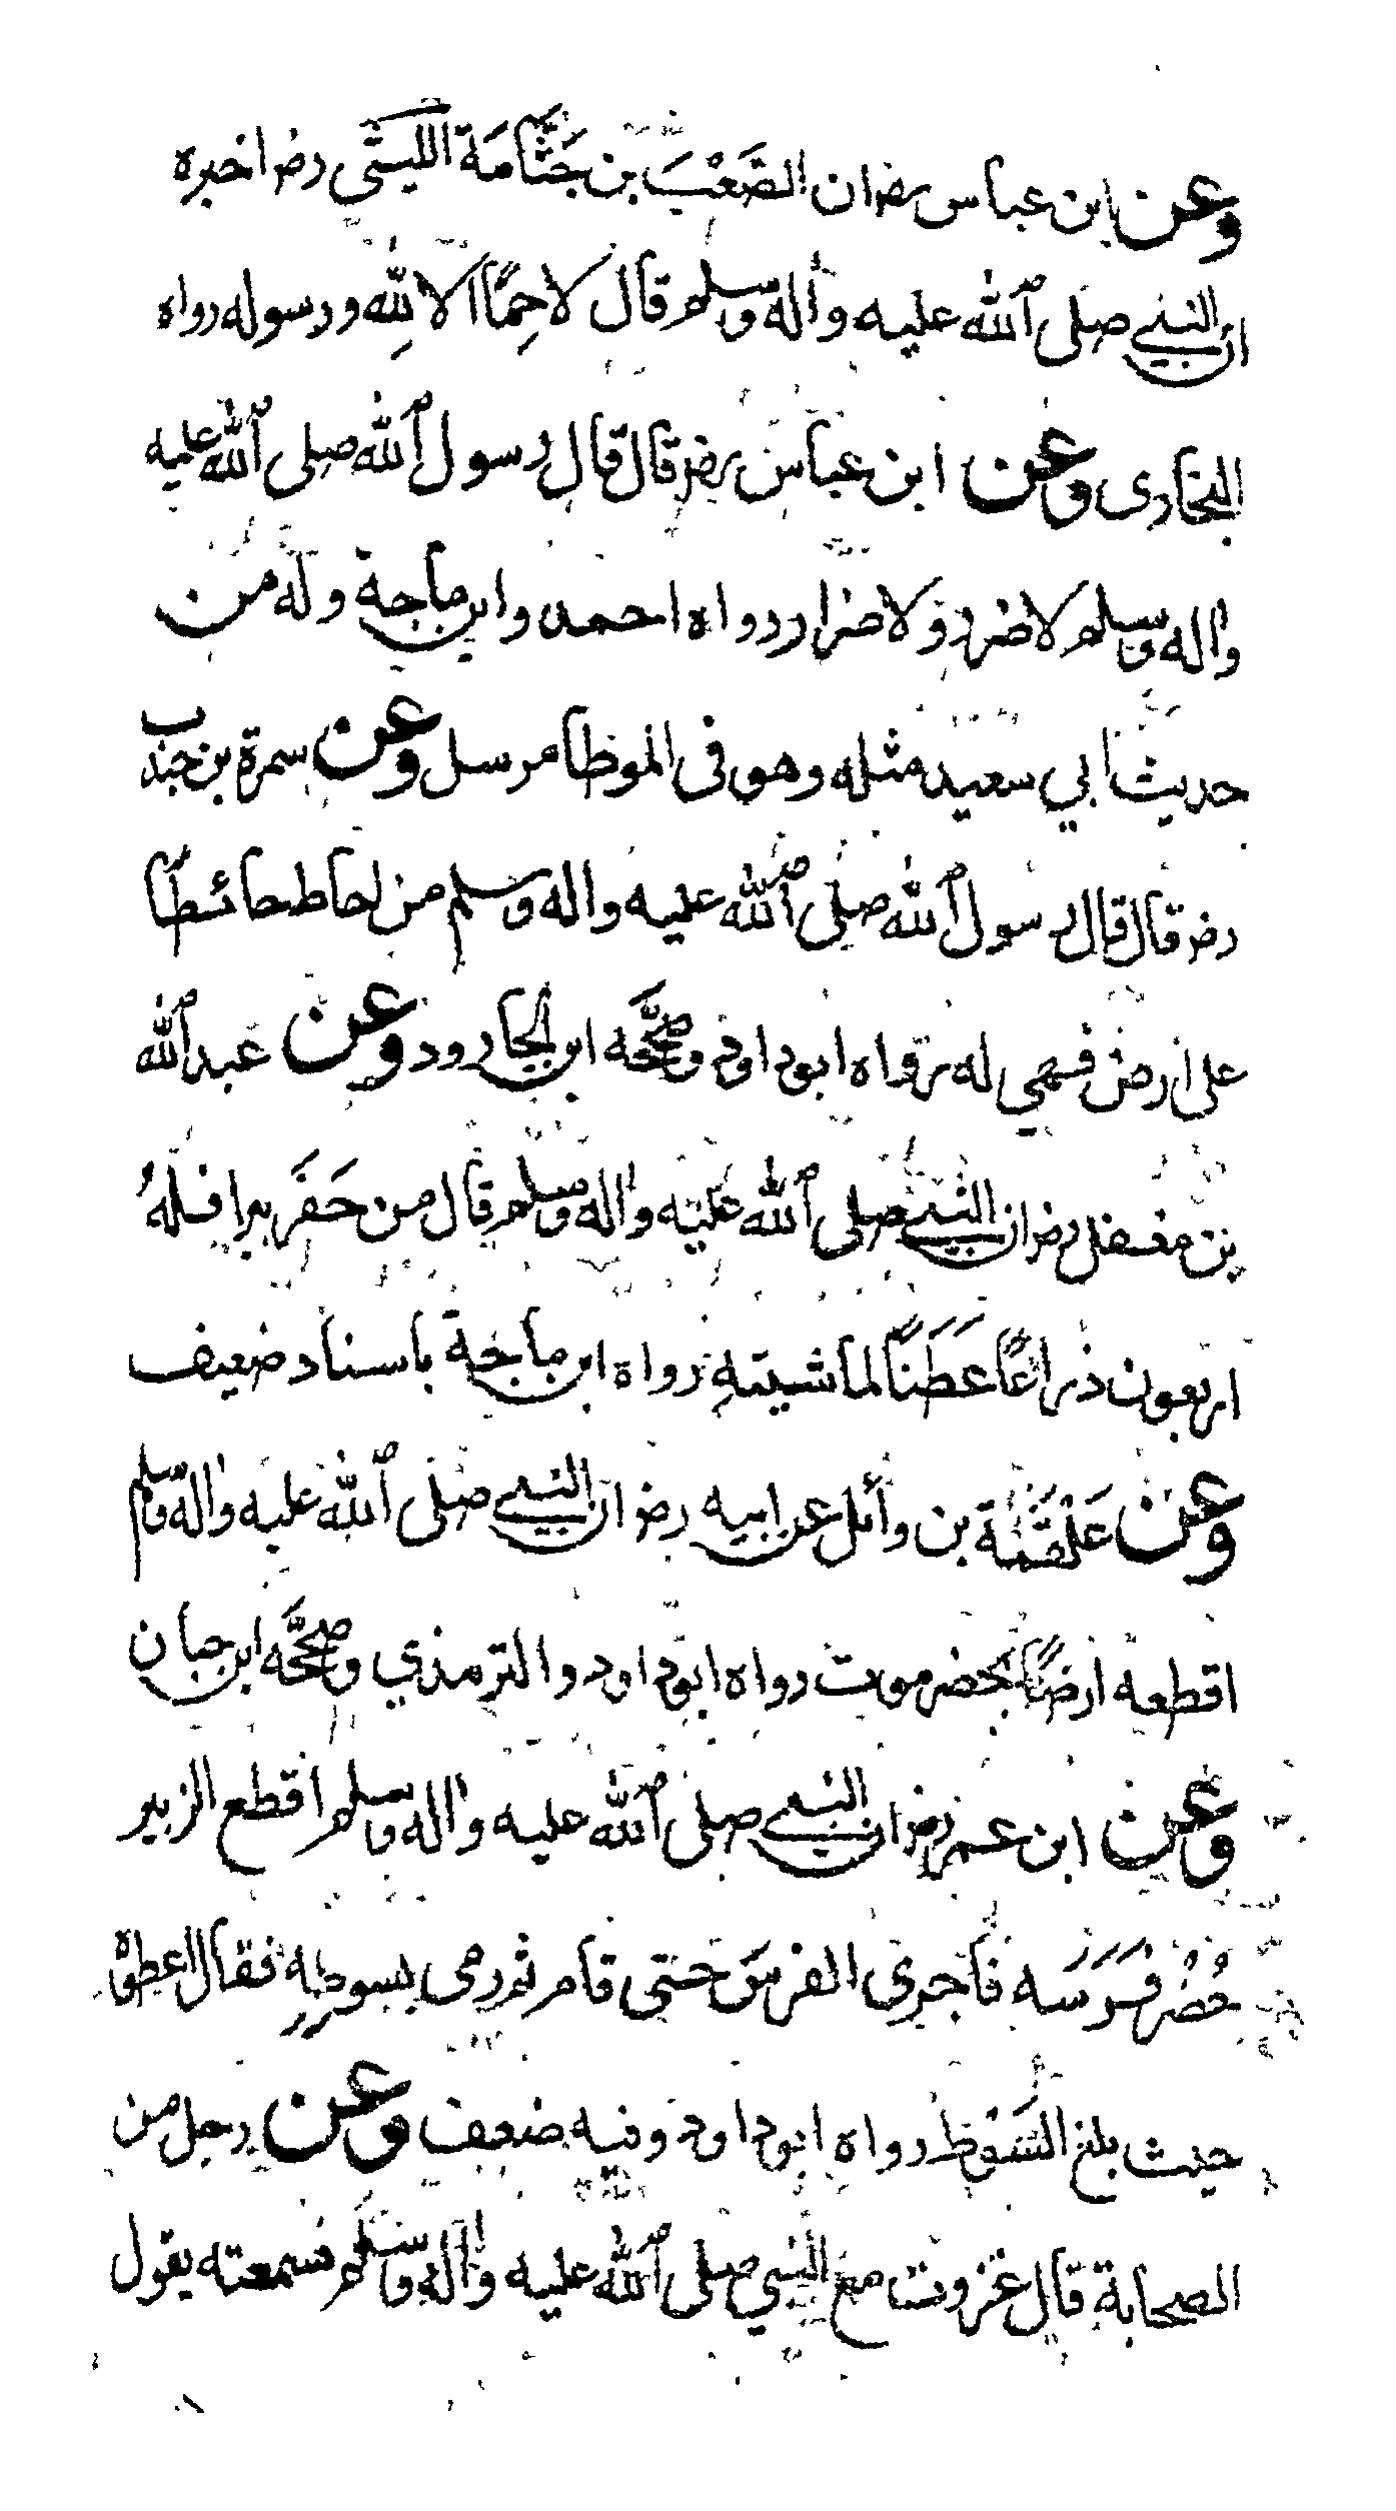 وعن ابن عباس رض ان الصَّعْبَ بن جَثَّامَة الليثي رض اخبره
ان النبي صلى الله عليه واله وسلم قال لا حِمًا الا لِلّه ورسوله رواه
البخاري وعن ابن عباس رض قال قال رسول الله صلى الله عليه
واله وسلم لا ضرر ولا ضرار رواه احمد وابن ماجة وله من
حديث ابي سعيد مثله وهو في الموطا مرسل وعن سمرة بن جندب
رض قال قال رسول الله صلى الله عليه واله وسلم من احاط حائطا
على ارض فهي له رواه ابو داود وصحَّحه ابن الجارود وعن عبد الله
بن مغفل رض ان النبي صلى الله عليه واله وسلم قال من حَفَر بيرا فلهُ
اربعون ذراعًا عَطَنًا لماشيتهِ رواه ابن ماجة باسناد ضعيف
وعن عَلْقَمَة بن وائل عن ابيه رض ان النبي صلى الله عليه واله وسلم
اقطعه ارضًا بحضرموت رواه ابو داود والترمذي وصحَّحه ابن حبان
وعن ابن عمر رض ان النبي صلى الله عليه واله وسلم اقطع الزبير
حُضْر فَرَسَه فاجرى الفرس حتى قام ثم رمى بسوطه فقال اعطوْه
حيث بلغ السَّوْط رواه ابو داود وفيه ضعف وعن رجل من
الصحابة قال غزوت مع النبي صلى الله عليه واله وسلم فسمعته يقول